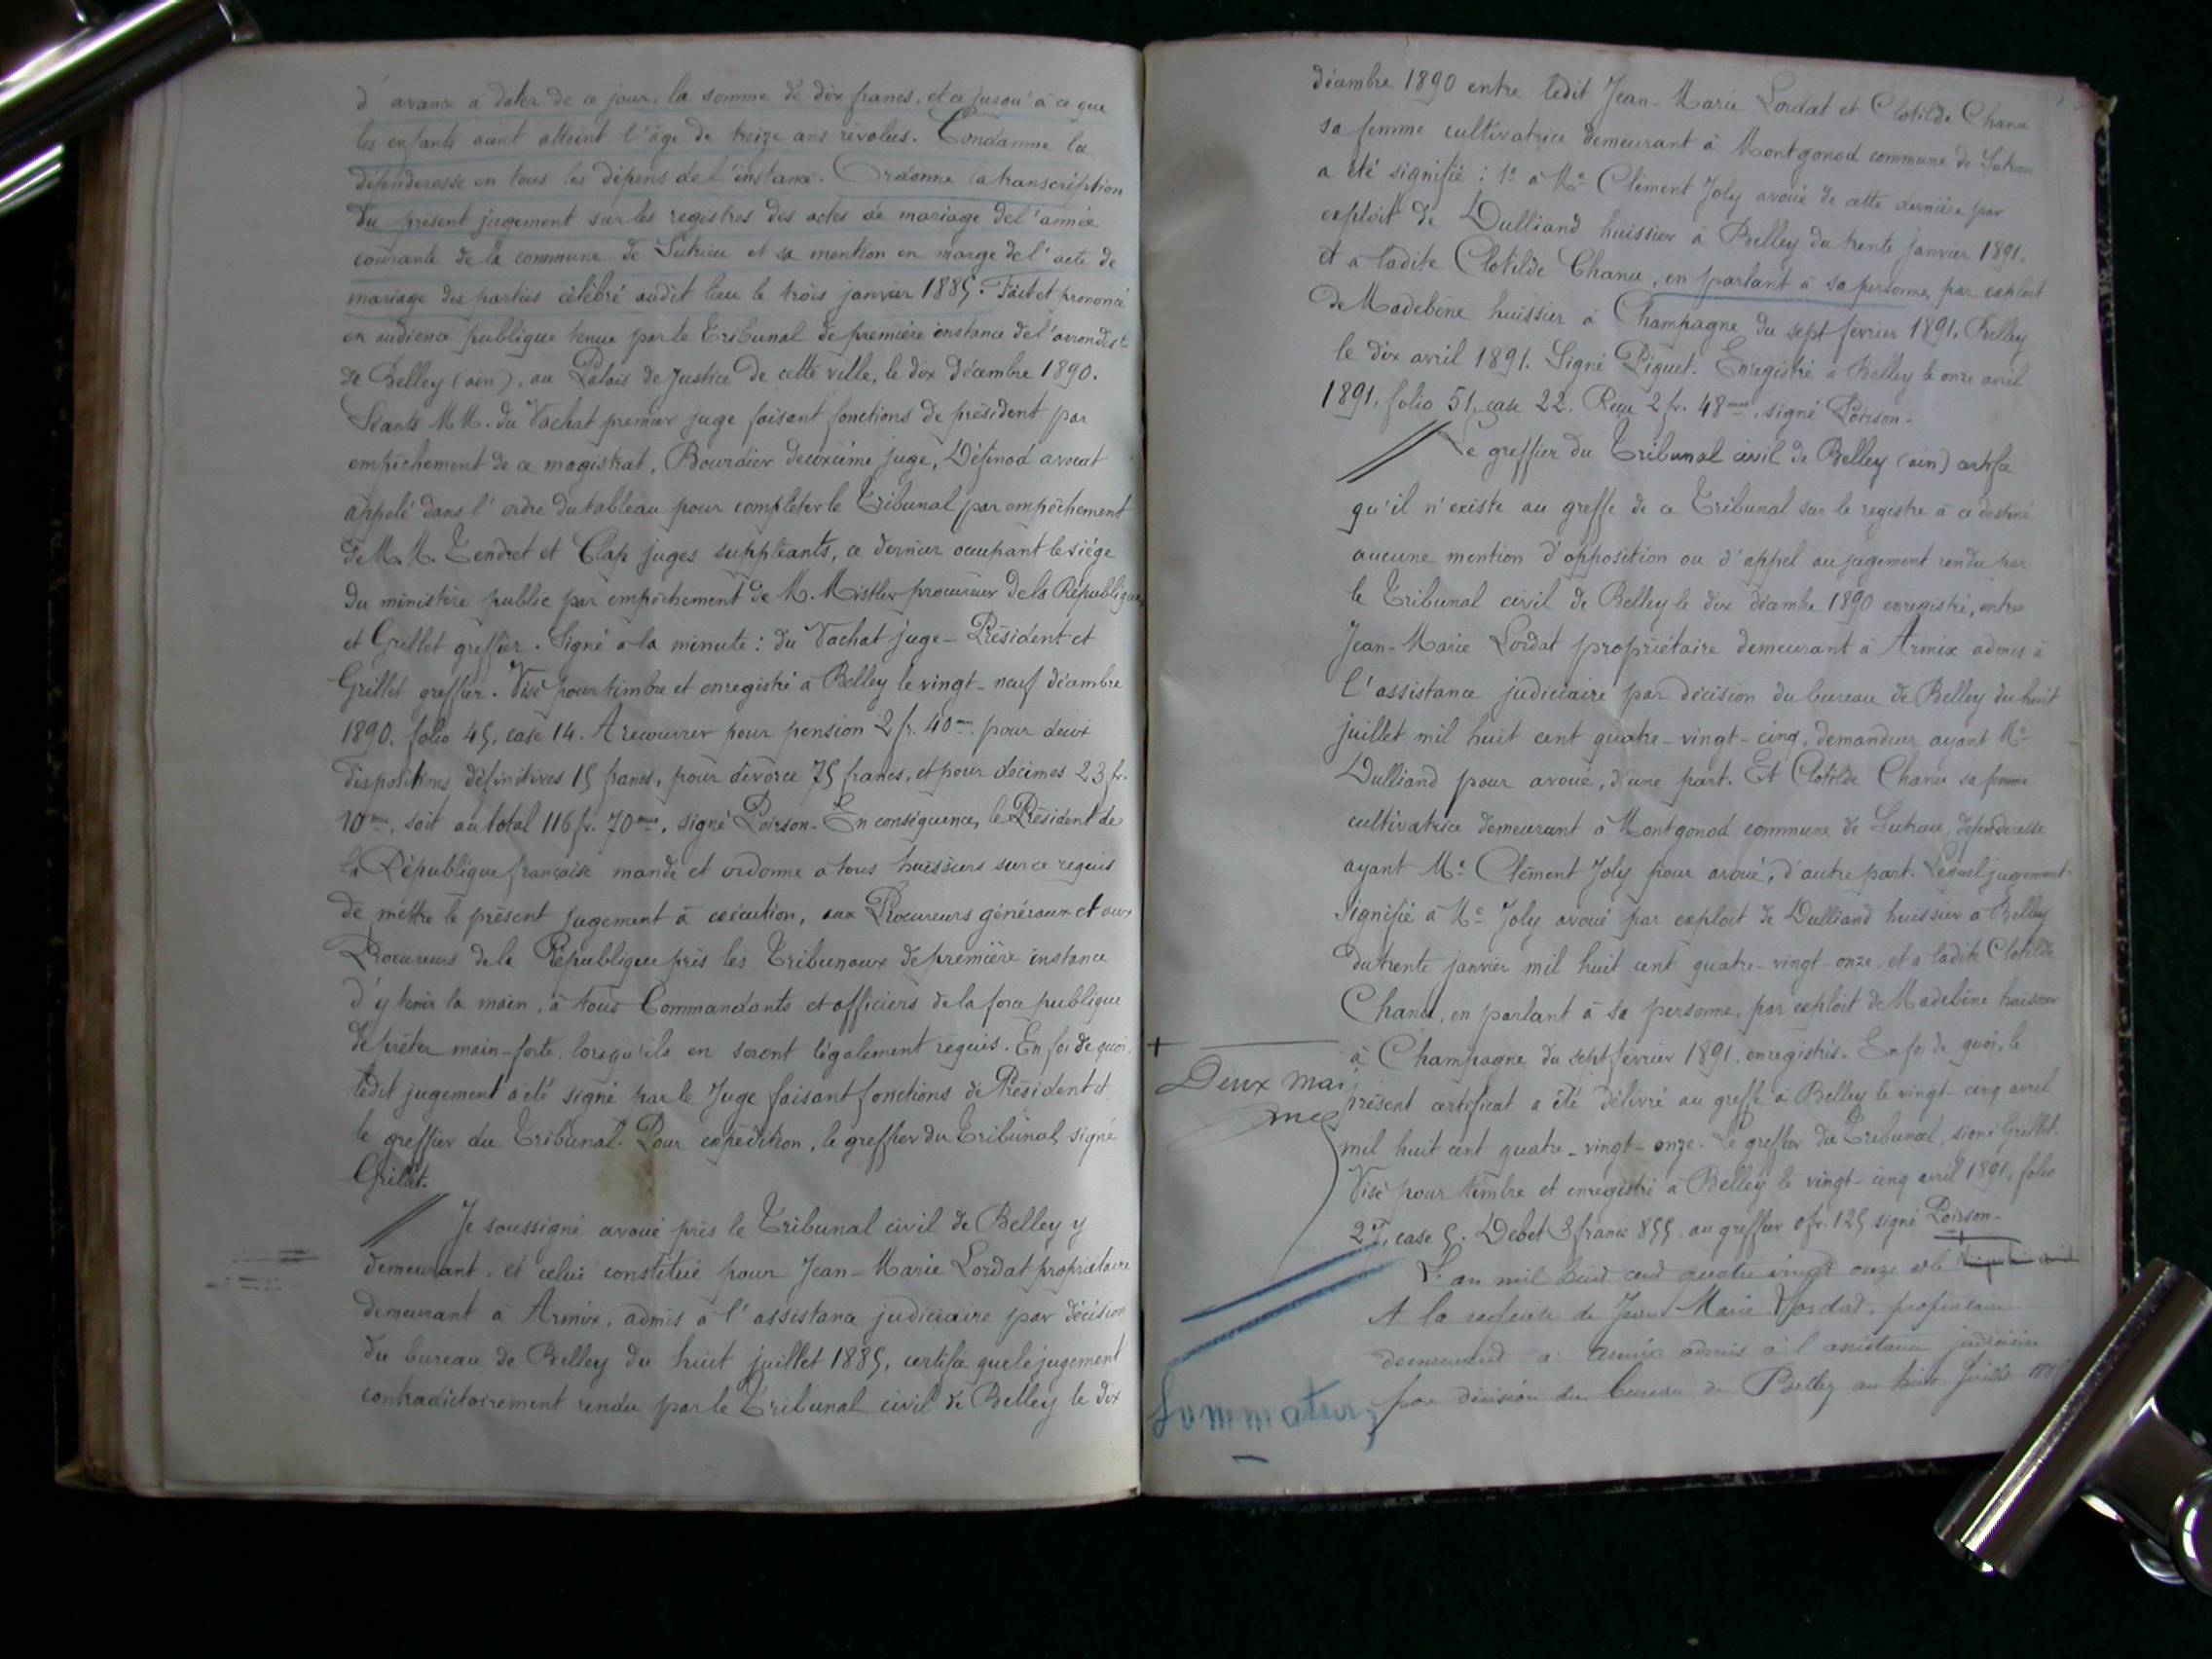 d'avance a dater de ce jour, la somme de dix francs, et ce jusqu'à ce que
les enfants aient atteint l'âge de treize ans révolus. Condamne la
défenderesse en tous les dépens de l'instance. Ordonne la transcription
du présent jugement sur les registres des actes de mariage de l'année
courante de la commune de Sutrieu et sa mention en marge de l'acte de
mariage des parties célébré audit lieu le trois janvier 1885. Fait et prononcé
en audience publique tenue par le Tribunal de première instance de l'arrondist
de Belley (ain), au Palais de Justice de cette ville, le dix décembre 1890.
Séants MM. du Vachat premier juge faisant fonctions de président par
empêchement de ce magistrat, Bourdier deuxième juge, Définod avocat
appelé dans l'ordre du tableau pour compléter le Tribunal par empêchement
de M.M. Tendret et Clap juges suppléants, ce dernier occupant le siége
du ministère public par empêchement de M. Mistler procureur de la République
et Grillet greffier. Signé a la minute : du Vachat juge-Président et
Grillet greffier. Visé pour timbre et enregistré à Belley le vingt-neuf décembre
1890, folo 45, case 14. A recouvrer pour pension 2 fr. 40 mes pour deux
dispositions définitives 15 francs, pour divorce 75 francs, et pour décimes 23 fr.
10 mes, soit au total 116 fr. 70 mes, signé Poirson - En conséquence, le Président de
la République française mande et ordonne a tous huissiers sur ce requis
de mettre le présent jugement à exécution, aux Procureurs généraux et aux
Procureurs de la République près les Tribunaux de première instance
d'y tenir la main, à tous Commandants et officiers de la force publique
de prêter main-forte lorsqu'ils en seront légalement requis. En foi de quoi,
ledit jugement a été signé par le Juge faisant fonctions de Président et
le greffier du Tribunal. Pour expédition, le greffier du Tribunal, signé
Grillet.
Je soussigné avoué près le Tribunal civil de Belley y
demeurant, et celui constitué pour Jean-Marie Lordat propriétaire
demeurant à Armix, admis à l'assistance judiciaire par décision
du bureau de Belley du huit juillet 1885, certifie que le jugement
contradictoirement rendu par le Tribunal civil de Belley le dix
décembre 1890 entre ledit Jean-Marie Lordat et Clotilde Chanu
sa femme cultivatrice demeurant à Montgonod commune de Sutrieu
a été signifié : 1° à Me Clément Joly avoué de cette dernière par
exploit de Dulliand huissier à Belley du trente janvier 1891,
et a ladite Clotilde Chanu, en parlant à sa personne, par exploit
de Madebène huissier à Champagne du sept février 1891. Belley
le dix avril 1891. Signé Piguet. Enregistré à Belley le onze avril
1891, folio 51, case 22. Reçu 2 fr. 48 mes, signé Poirson -
Le greffier du Tribunal civil de Belley (ain) certifie
qu'il n'existe au greffe de ce Tribunal sur le registre à ce destiné
aucune mention d'opposition ou d'appel au jugement rendu par
le Tribunal civil de Belley le dix décembre 1890 enregistré, entre
Jean-Marie Lordat propriétaire demeurant à Armix admis à
l'assistance judiciaire par décision du bureau de Belley du huit
juillet mil huit cent quatre-vingt-cinq, demandeur ayant Me
Dulliand pour avoué, d'une part. Et Clotilde Chanu sa femme
cultivatrice demeurant à Montgonod commune de Sutrieu, défenderesse
ayant Me Clément Joly pour avoué, d'autre part. Lequel jugement
signifié à Me Joly avoué par exploit de Dulliand huissier à Belley
du trente janvier mil huit cent quatre-vingt-onze, et a ladite Clotilde
Chanu, en parlant à sa personne, par exploit de Madebène huissier
à Champagne du sept février 1891, enregistrés. En foi de quoi, le
présent certificat a été délivré au greffe à Belley le vingt-cinq avril
mil huit cent quatre-vingt-onze. Le greffier du Tribunal, signé Grillet.
Visé pour timbre et enregistré à Belley le vingt-cinq avril 1891, folio
27, case 5. Debet 3 francs 855, au greffier 0 fr. 125 signé Poirson -
+
Deux mai
L'an mil huit cent quatre vingt onze et le
A la requete de Jean Marie Lordat, propriétaire
demeurant à Armix admis à l'assistance judiciaire
par décision du bureau de Belley du huit Juillet
Sommateur